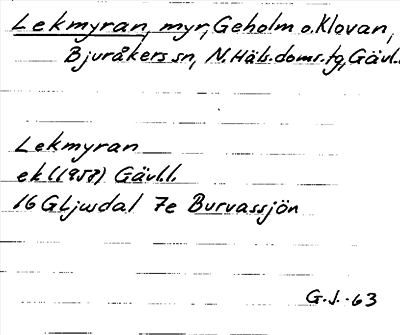 Lekmyran, myr, Geholm o. Klovan,
Bjuråkers sn, N. Häls. doms. tg, Gävl.
Lekmyran
ek (1957) Gävl.l.
16 G Ljusdal 7e Burvassjön
G.J. -63